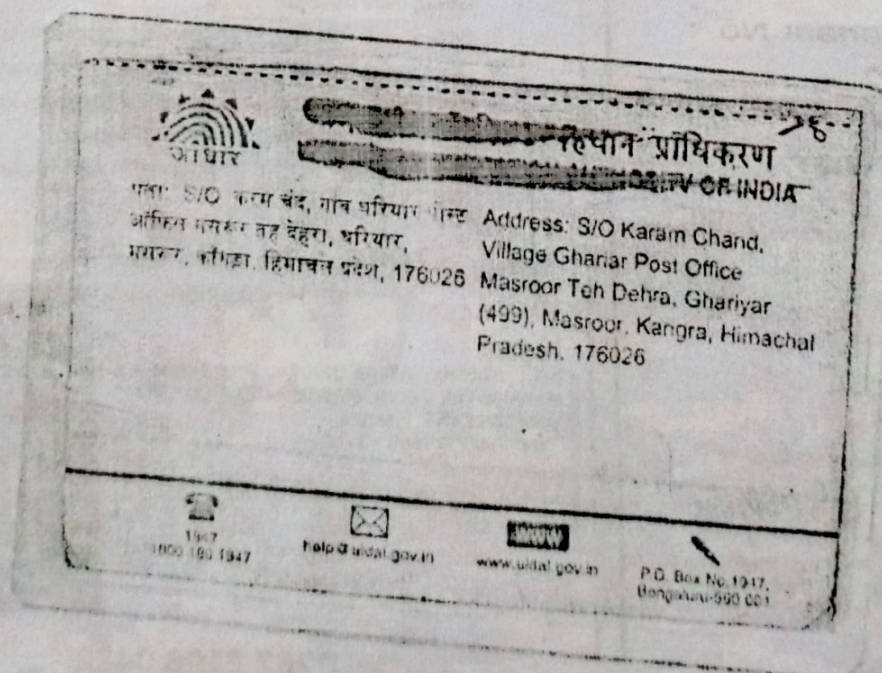 आधार
प्राधिकरण
OF INDIA
पता: S/O करम चंद, गांव घरियार पोस्ट
ऑफिस मसरूर तह देहरा, घरियार,
मसरूर, काँगड़ा, हिमाचल प्रदेश, 176026
Address: S/O Karam Chand,
Village Ghariar Post Office
Masroor Teh Dehra, Ghariyar
(499), Masroor, Kangra, Himachal
Pradesh, 176026
1947
1800 180 1947
help@uidai.gov.in
www
www.uidai.gov.in
P.O. Box No.1947,
Bengaluru-560 001